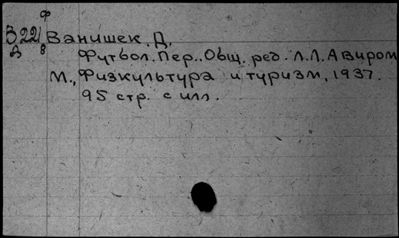 Ф
З 221 Ванишек, Д.
Д 8
Футбол. Пер.. Общ. ред. Л.Л. Авиром
М., Физкультура и туризм, 1937.
95 стр. с илл.